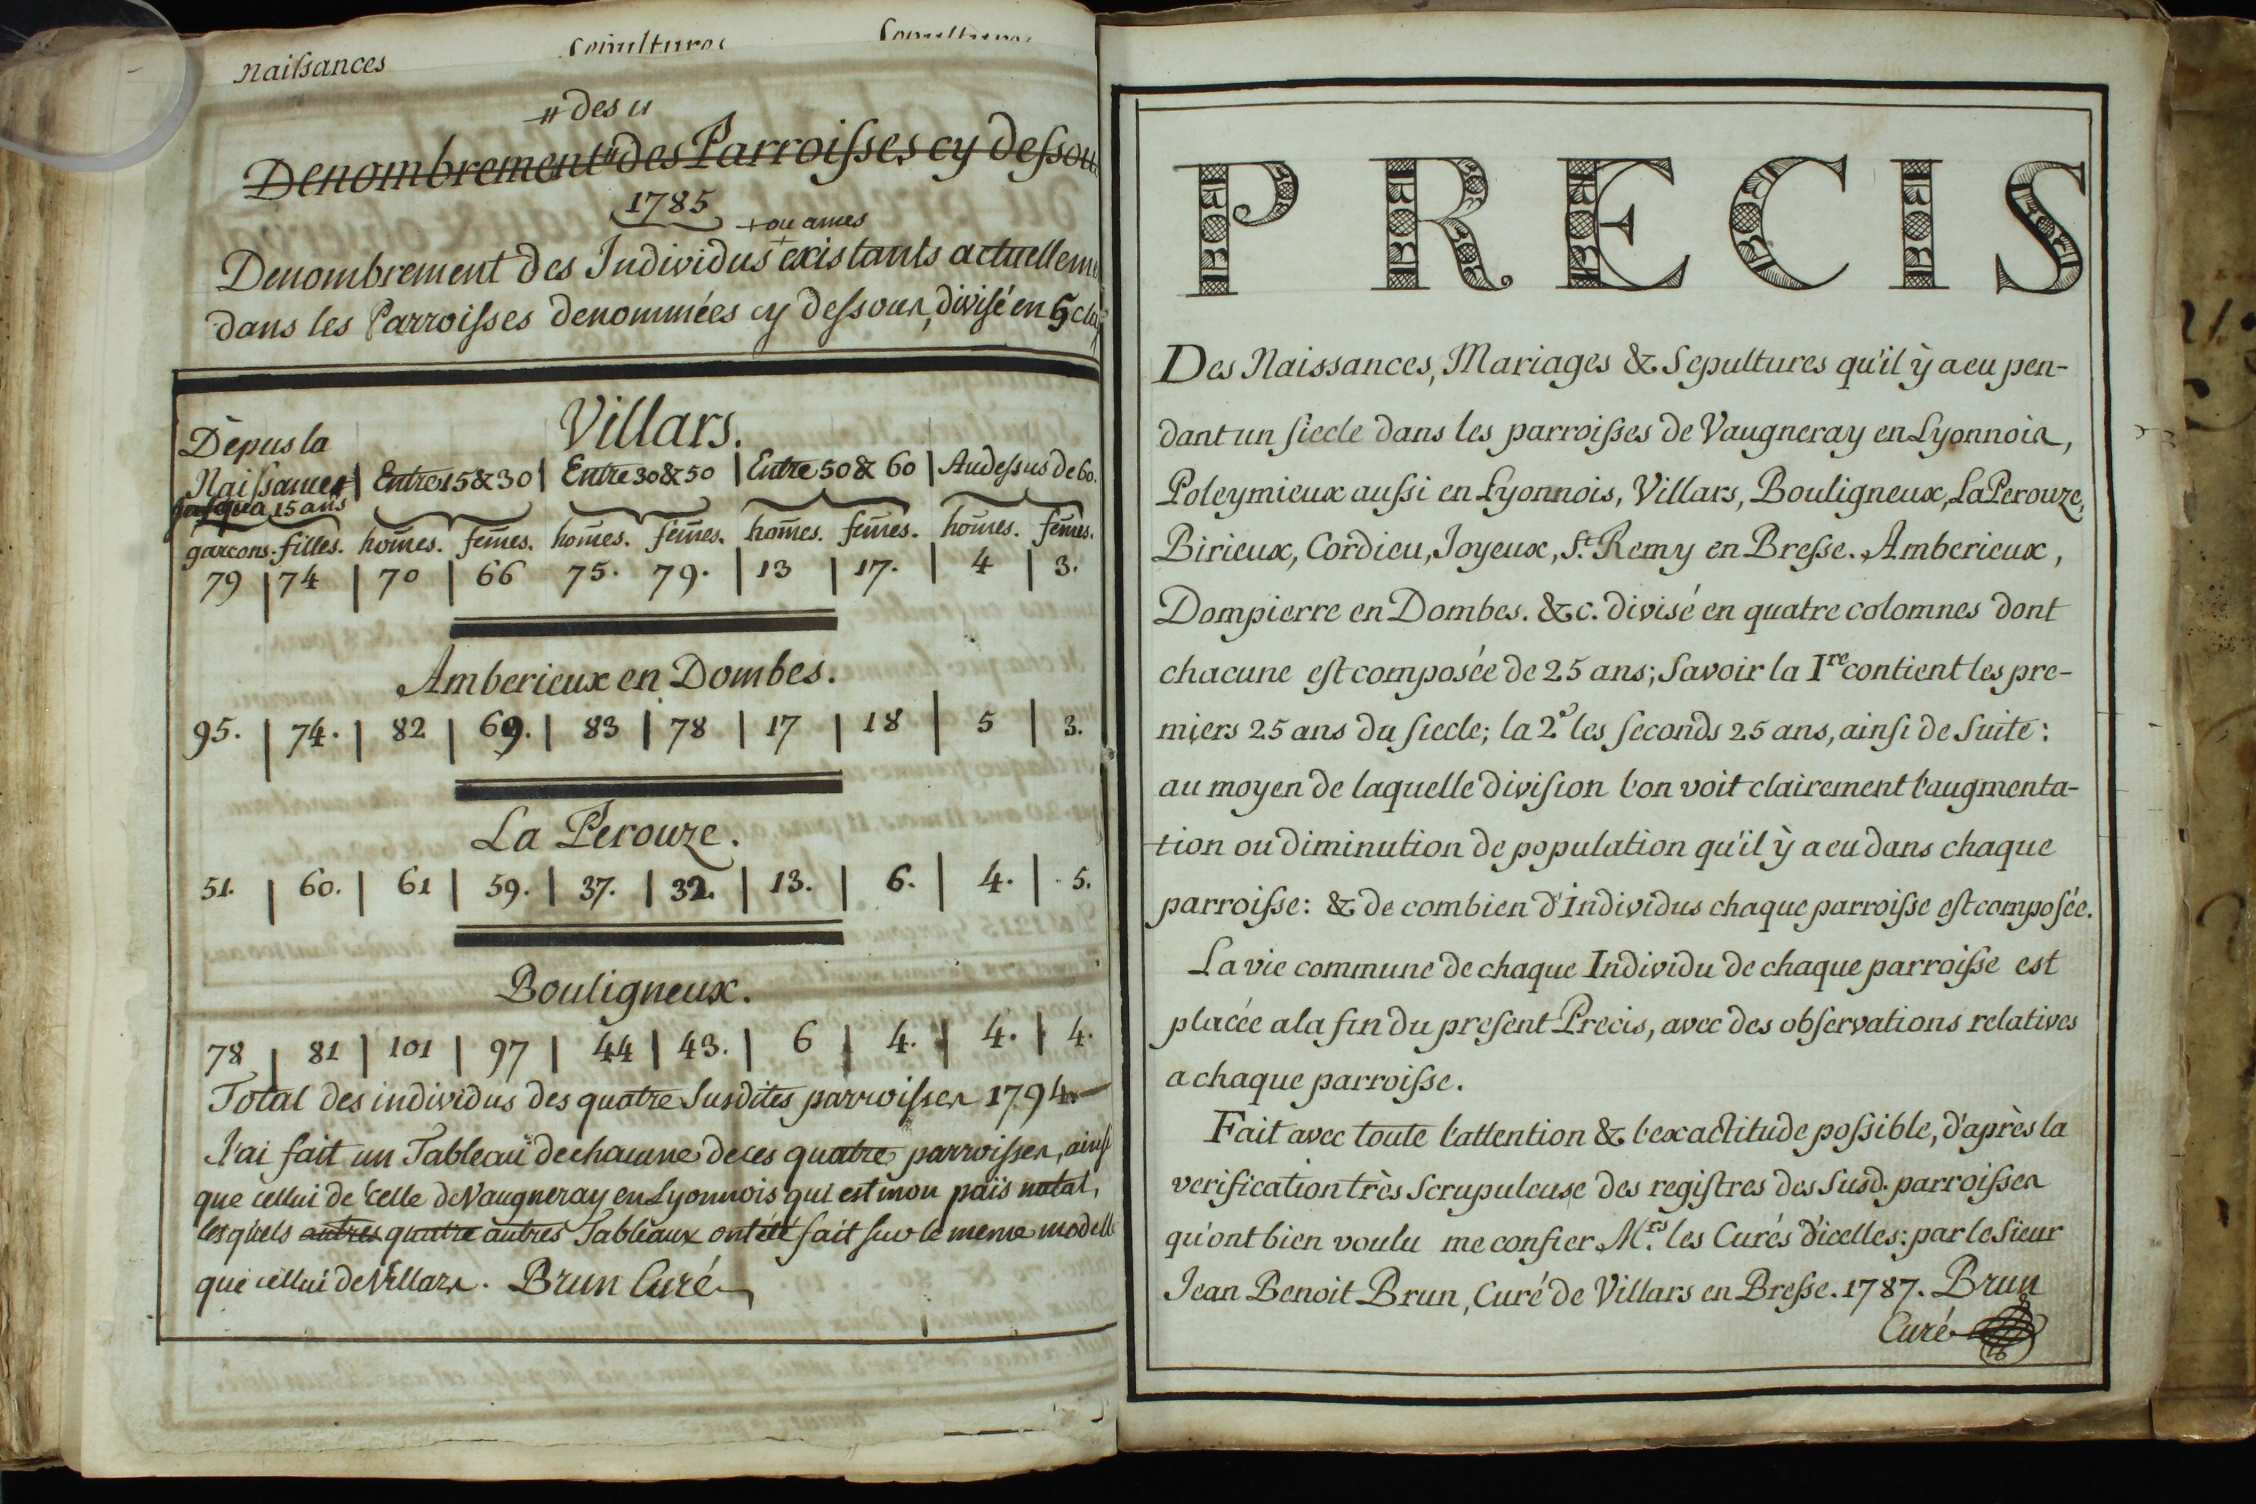 Naissances Sepultures Sepultures
# des "
Denombrement " des Parroisses cy dessou
1785
+ ou ames
Denombrement des Individus + existants actuelleme
dans les Parroisses denommées cy dessous, divisé en 5 cla
Villars.
Dèpus la
Naissance | Entre 15 & 30 | Entre 30 & 50 | Entre 50 & 60 | Audessus de 60.
jusqua 15 ans
garcons. filles. hom̄es. fem̄es. hom̄es. fem̄es. hom̄es. fem̄es. hom̄es. fem̄es.
79 | 74 | 70 | 66 75. 79. | 13 | 17. | 4 | 3.
Amberieux en Dombes.
95. | 74. | 82 | 69. | 83 | 78 | 17 | 18 | 5 | 3.
La Perouze.
51. | 60. | 61 | 59. | 37. | 32. | 13. | 6. | 4. | 5.
Bouligneux.
78 | 81 | 101 | 97 | 44 | 43. | 6 | 4. | 4. | 4.
Total des individus des quatre Susdites parroisses 1794.
J'ai fait un Tableau de chacune de ces quatre parroisses, ainsi
que cellui de celle de Vaugneray en Lyonnois qui est mon païs natal,
lesquels autres quatre autres Tableaux ont été fait sur le meme modelle
que cellui de Villars. Brun Curé
PRECIS
Des Naissances, Mariages & Sepultures qu'il ÿ a eu pen-
dant un siecle dans les parroisses de Vaugneray en Lyonnois,
Poleymieux aussi en Lyonnois, Villars, Bouligneux, La Perouze,
Birieux, Cordieu, Joyeux, St. Remy en Bresse. Amberieux,
Dompierre en Dombes. &c. divisé en quatre colomnes dont
chacune est composée de 25 ans; Savoir la Ire contient les pre-
miers 25 ans du siecle; la 2e les seconds 25 ans, ainsi de Suite:
au moyen de laquelle division l'on voit clairement l'augmenta-
tion ou diminution de population qu'il ÿ a eu dans chaque
parroisse: & de combien d'Individus chaque parroisse est composée.
La vie commune de chaque Individu de chaque parroisse est
placée a la fin du present Precis, avec des observations relatives
a chaque parroisse.
Fait avec toute l'attention & l'exactitude possible, d'après la
verification très Scrupuleuse des registres des Susd. parroisses
qu'ont bien voulu me confier Mrs. les Curés d'icelles: par le Sieur
Jean Benoit Brun, Curé de Villars en Bresse. 1787. Brun
Curé